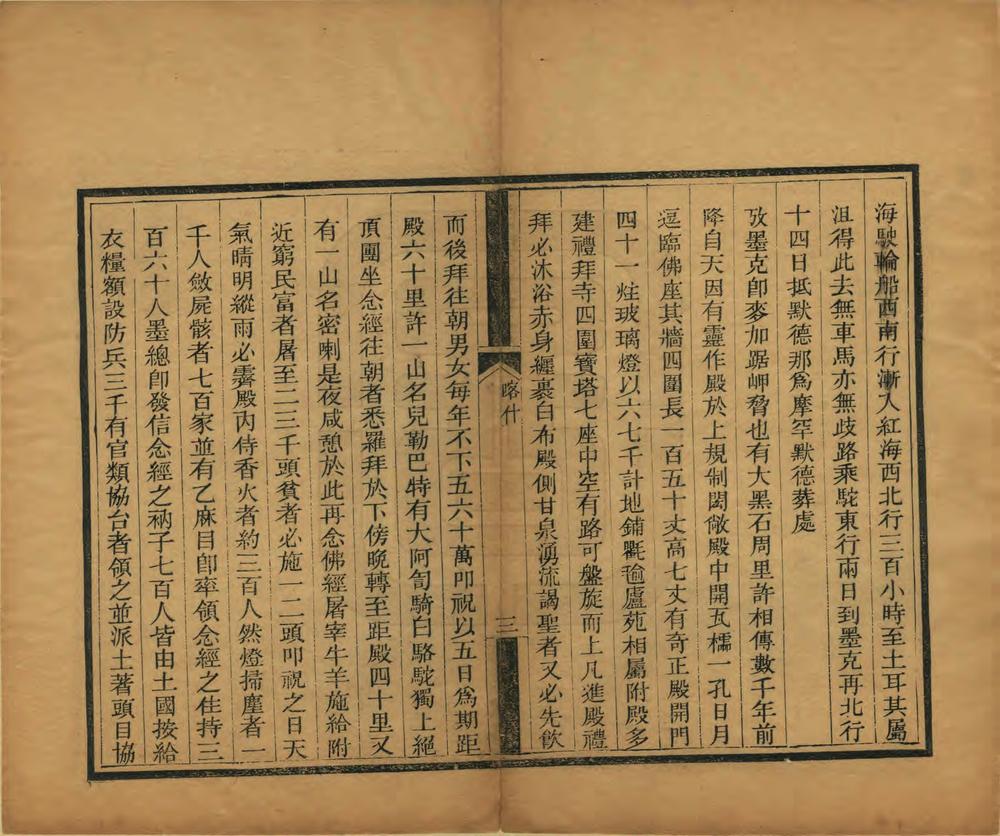 海駛輪船西南行漸入紅海西北行三百小時至土耳其屬
沮得此去無車馬亦無歧路乘駝東行兩日到墨克再北行
十四日抵默德那爲摩罕默德葬處
攷墨克卽麥加踞岬脅也有大黑石周里許相傳數千年前
降自天因有靈作殿於上規制閎敞殿中開瓦櫺一孔日月
逕臨佛座其牆四圍長一百五十丈高七丈有奇正殿開門
四十一炷玻璃燈以六七千計地鋪氍毹廬苑相屬附殿多
建禮拜寺四圍寶塔七座中空有路可盤旋而上凡進殿禮
拜必沐浴赤身纏裹白布殿側甘泉湧流謁聖者又必先飲
喀什
三
而後拜往朝男女每年不下五六十萬叩祝以五日爲期距
殿六十里許一山名兒勒巴特有大阿訇騎白駱駝獨上絕
頂團坐念經往朝者悉羅拜於下傍晚轉至距殿四十里又
有一山名密喇是夜咸憩於此再念佛經屠宰牛羊施給附
近窮民富者屠至二三千頭貧者必施一二頭叩祝之日天
氣晴明縱雨必霽殿內侍香火者約三百人然燈掃塵者一
千人斂屍骸者七百家並有乙麻目卽率領念經之住持三
百六十人墨總卽發信念經之衲子七百人皆由土國按給
衣糧額設防兵三千有官類協台者領之並派土著頭目協